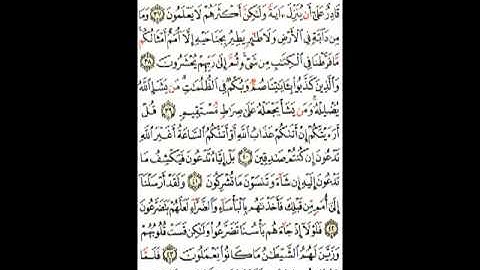 قَادِرٌ عَلَىٰٓ أَن يُنَزِّلَ ءَايَةً وَلَٰكِنَّ أَكْثَرَهُمْ لَا يَعْلَمُونَ ٣٧ وَمَا
مِن دَآبَّةٍ فِى ٱلْأَرْضِ وَلَا طَٰٓئِرٍ يَطِيرُ بِجَنَاحَيْهِ إِلَّآ أُمَمٌ أَمْثَالُكُم
مَّا فَرَّطْنَا فِى ٱلْكِتَٰبِ مِن شَىْءٍ ثُمَّ إِلَىٰ رَبِّهِمْ يُحْشَرُونَ ٣٨
وَٱلَّذِينَ كَذَّبُوا۟ بِـَٔايَٰتِنَا صُمٌّ وَبُكْمٌ فِى ٱلظُّلُمَٰتِ مَن يَشَإِ ٱللَّهُ
يُضْلِلْهُ وَمَن يَشَأْ يَجْعَلْهُ عَلَىٰ صِرَٰطٍ مُّسْتَقِيمٍ ٣٩ قُلْ
أَرَءَيْتَكُمْ إِنْ أَتَىٰكُمْ عَذَابُ ٱللَّهِ أَوْ أَتَتْكُمُ ٱلسَّاعَةُ أَغَيْرَ ٱللَّهِ
تَدْعُونَ إِن كُنتُمْ صَٰدِقِينَ ٤٠ بَلْ إِيَّاهُ تَدْعُونَ فَيَكْشِفُ مَا
تَدْعُونَ إِلَيْهِ إِن شَآءَ وَتَنسَوْنَ مَا تُشْرِكُونَ ٤١ وَلَقَدْ أَرْسَلْنَآ
إِلَىٰٓ أُمَمٍ مِّن قَبْلِكَ فَأَخَذْنَٰهُم بِٱلْبَأْسَآءِ وَٱلضَّرَّآءِ لَعَلَّهُمْ يَتَضَرَّعُونَ
٤٢ فَلَوْلَآ إِذْ جَآءَهُم بَأْسُنَا تَضَرَّعُوا۟ وَلَٰكِن قَسَتْ قُلُوبُهُمْ
وَزَيَّنَ لَهُمُ ٱلشَّيْطَٰنُ مَا كَانُوا۟ يَعْمَلُونَ ٤٣ فَلَمَّا